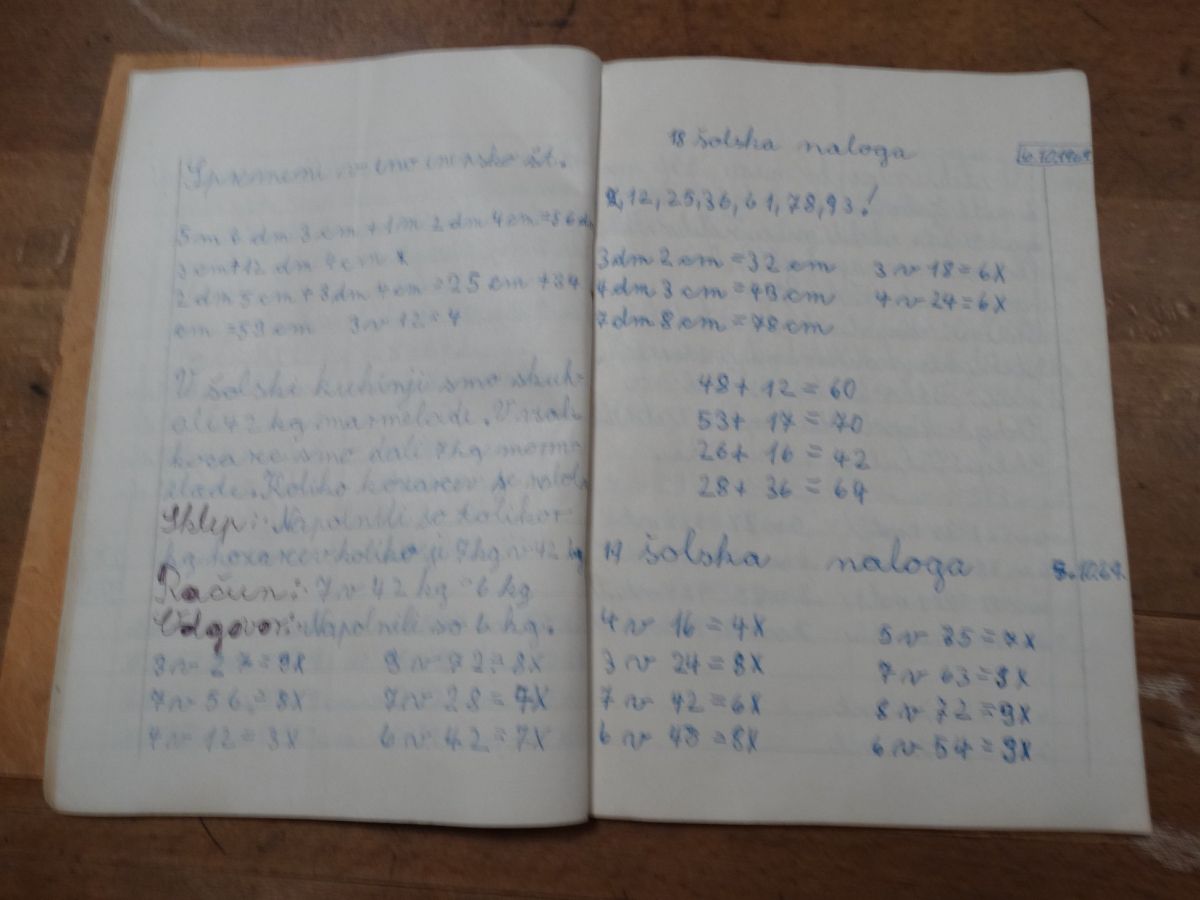 Spremeni v enoimensko št.
5m 6 dm 3 cm + 1m 2 dm 4 cm = 56 dm
3 cm + 12 dm 4 cm
2 dm 5 cm + 3 dm 4 cm = 25 cm + 34
cm = 59 cm 3 v 12 = 4
V šolski kuhinji smo skuh-
ali 42 kg marmelade. V
kozarce smo dali 7 kg marme
lade. Koliko kozarcev
Sklep: Napolnili so toliko
kg kozarcev koliko je 7 kg v 42 kg
Račun: 7 v 42 kg = 6 kg
Odgovor: Napolnili so 6 kg.
3 v 27 = 9X 9 v 72 = 8X
7 v 56 = 8X 7 v 28 = 4X
4 v 12 = 3X 6 v 42 = 7X
18 šolska naloga
12, 25, 36, 61, 78, 93!
3 dm 2 cm = 32 cm 3 v 18 = 6X
4 dm 3 cm = 43 cm 4 v 24 = 6X
7 dm 8 cm = 78 cm
48 + 12 = 60
53 + 17 = 70
26 + 16 = 42
28 + 36 = 64
19 šolska naloga 8.10.64.
4 v 16 = 4X 5 v 35 = 7X
3 v 24 = 8X 7 v 63 = 9X
7 v 42 = 6X 8 v 72 = 9X
6 v 48 = 8X 6 v 54 = 9X